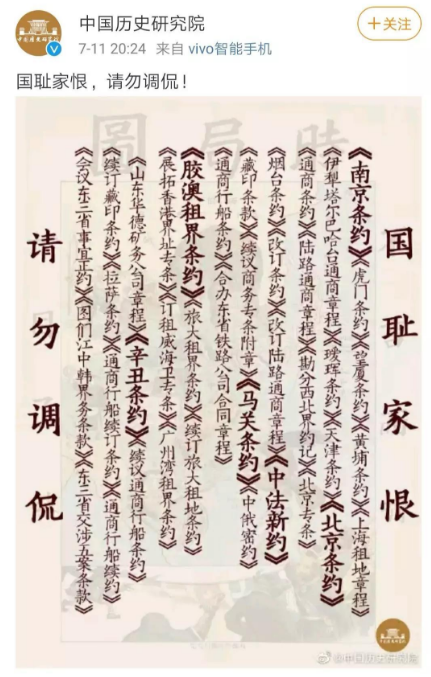 中国历史研究院
+关注
7-11 20:24 来自 vivo智能手机
国耻家恨，请勿调侃！
時局圖
国耻家恨
《南京条约》《虎门条约》《望厦条约》《黄埔条约》《上海租地章程》
《伊犁塔尔巴哈台通商章程》《瑷珲条约》《天津条约》《北京条约》
《通商条约》《陆路通商章程》《勘分西北界约记》《北京专条》
《烟台条约》《改订条约》《改订陆路通商章程》《中法新约》
《藏印条款》《续议商务专条附章》《马关条约》《中俄密约》
《通商行船条约》《合办东省铁路公司合同章程》
《胶澳租界条约》《旅大租界条约》《续订旅大租地条约》
《展拓香港界址专条》《订租威海卫专条》《广州湾租界条约》
《山东华德矿务公司章程》《辛丑条约》《续议通商行船条约》
《续订藏印条约》《拉萨条约》《通商行船续订条约》《通商行船续约》
《会议东三省事宜正约》《图们江中韩界务条款》《东三省交涉五案条款》
请勿调侃
@中国历史研究院